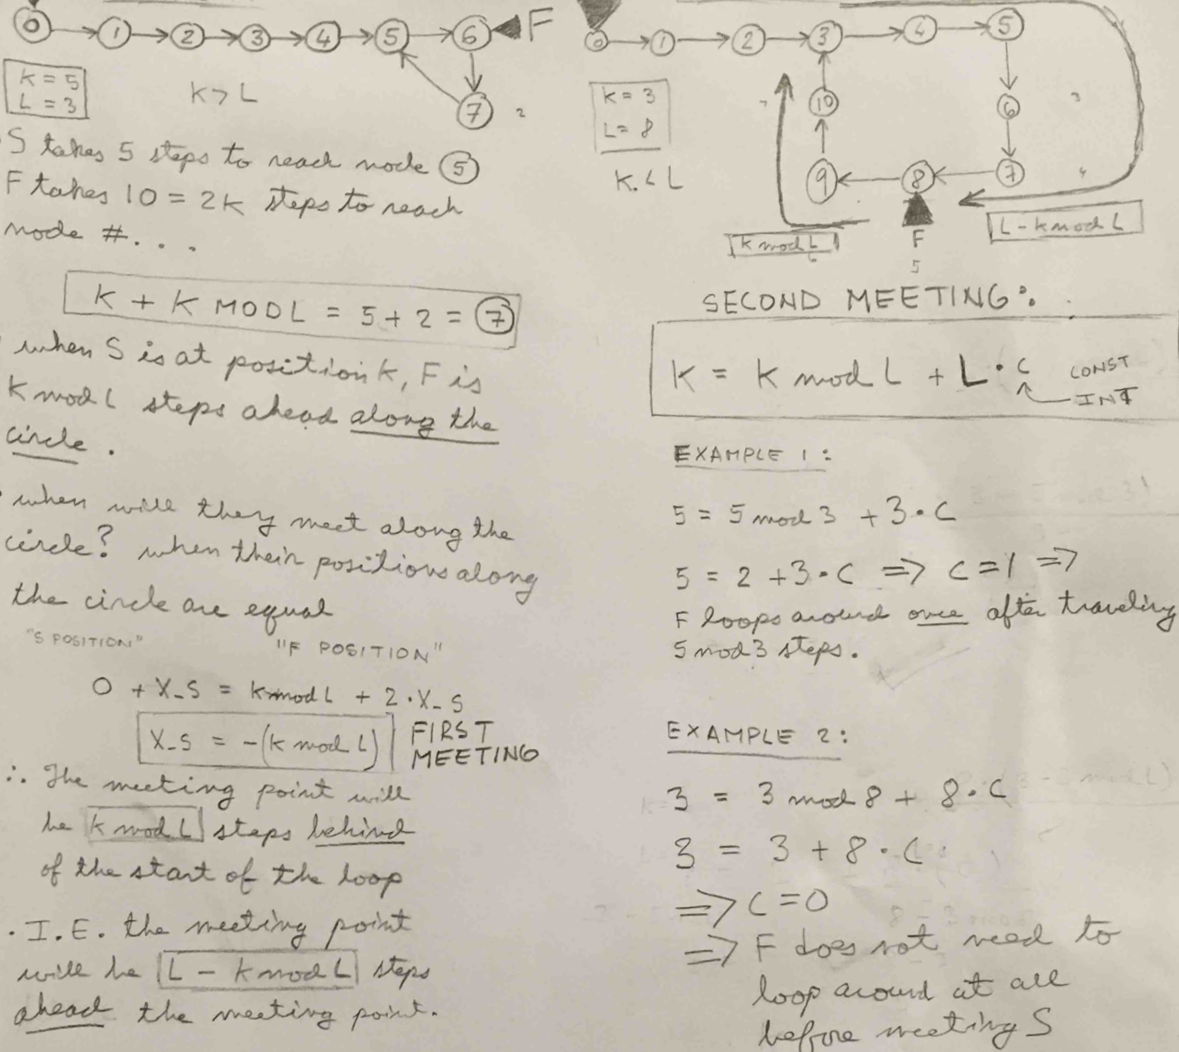 0 1 2 3 4 5 6 F
7
K = 5
L = 3
K > L
S takes 5 steps to reach node 5
F takes 10 = 2K steps to reach
node #. . .
K + K MOD L = 5 + 2 = 7
when S is at position K, F is
K mod L steps ahead along the
circle.
when will they meet along the
circle? when their positions along
the circle are equal
"S POSITION" "F POSITION"
0 + X_S = K mod L + 2 · X_S
X_S = -(K mod L) FIRST
MEETING
∴ The meeting point will
be K mod L steps behind
of the start of the loop
· I.E. the meeting point
will be L - K mod L steps
ahead the meeting point.
0 1 2 3 4 5
K = 3
L = 8
K < L
10 6 3
9 8 7 4
K mod L
6
F
5
L - K mod L
SECOND MEETING:
K = K mod L + L · C CONST
INT
EXAMPLE 1:
5 = 5 mod 3 + 3 · C
5 = 2 + 3 · C => C = 1 =>
F loops around once after traveling
5 mod 3 steps.
EXAMPLE 2:
3 = 3 mod 8 + 8 · C
3 = 3 + 8 · C
=> C = 0
=> F does not need to
loop around at all
before meeting S